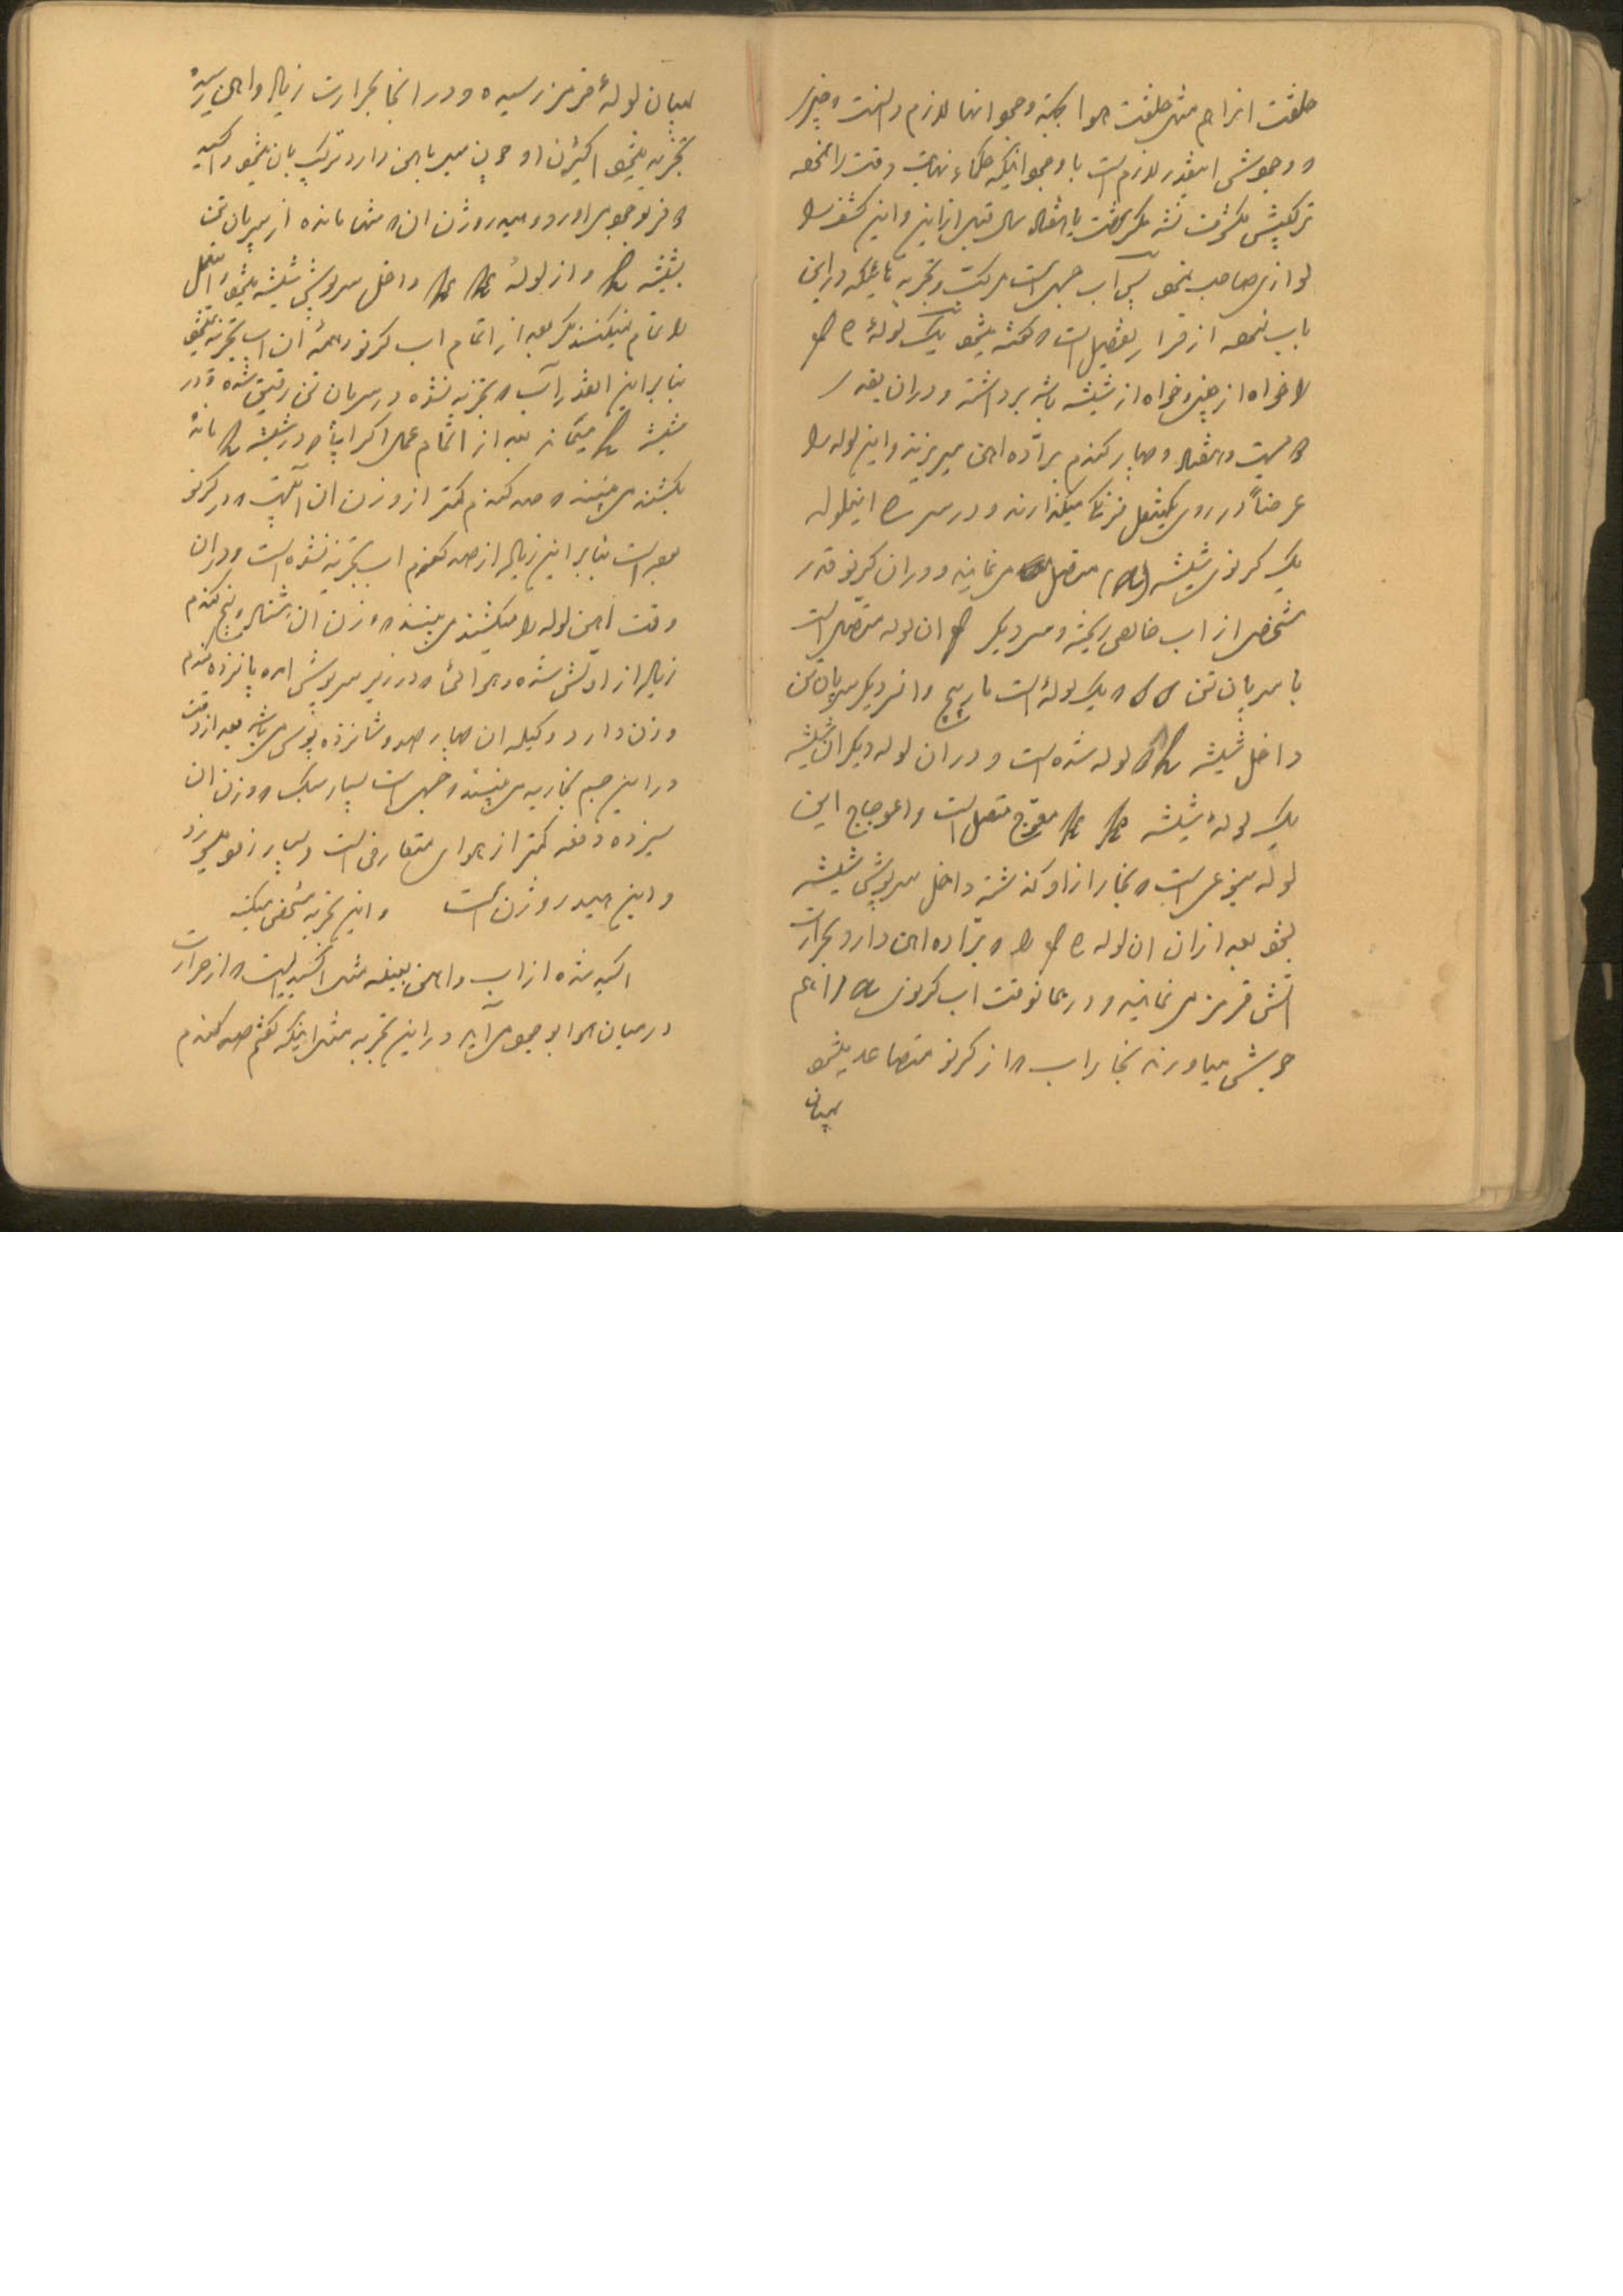 خلقت اجرام مثل خلقت هوا بجهة وجود آنها لازم دانست و چیزی
که وجودش اینقدر لازم است با وجود اینکه حکماء نهایت دقت را نموده
ترکیبش مکشوف نشد مگر هفت یا هشت سال قبل از این و این کشف را
لوازی صاحب نمود پس آب جسمی است مرکب و تجربه که در این
باب نموده از قرار تفصیل است که گفته میشود یک لولهٔ
را خواه از چینی و خواه از شیشه باشد برداشته و در آن بقدر
که بیست و هفت و چهار گندم برّاده آهن میریزند و این لوله را
عرضاً در روی یک منقل فرنگی میگذارند و در سر این لوله
یک کرنوی شیشه (a) متصل می نمایند و در آن کرنو قدر
مشخصی از آب خالص ریخته و سر دیگر آن لوله متصل است
با سرپان تن SS که یک لوله ایست مارپیچ و آنسر دیگر سرپان تن
داخل شیشه h که لوله شده است و در آن لوله دیگر آن شیشه
یک لولهٔ شیشه kk معوّج متصل است و اعوجاج این
لوله بنوعی است که بخار از او گذشته داخل سرپوش شیشه
بشود بعد از آن آن لوله را که برّاده آهن دارد بحرارت
آتش قرمز می نمایند و در همانوقت آب کرنوی a را هم
جوش میآورند بخار آب که از کرنو متصاعد میشود
بمیان
بمیان لولهٔ قرمز رسیده و در آنجا بحرارت زیاد و آهن رسیده
تجزیه میشود اکسیژن او چون میل با آهن دارد ترکیب بآن میشود و اکسید
که فر بوجود می آورد و هیدروژن آن که تنها مانده از سرپان تن
بشیشه h و از لولهٔ kk داخل سرپوش شیشه میشود و این عمل
را تمام نمیکنند مگر بعد از اتمام آب کرنو و همهٔ آن آب تجزیه نمیشود
بنابراین آنقدر آب که تجزیه نشده در سرپان تن رقیق شده و در
شیشه h میماند بعد از اتمام عمل اگر آب که در شیشه h مانده
بکشند می بینند که صد گندم کمتر از وزن آن آبیست که در کرنو
بوده است بنابراین زیاده از صد گندم آب تجزیه نشده است و در آن
وقت آهن لوله را میکشند می بینند که وزن آن هشتاد و پنج گندم
زیاده از اولش شده و هوائی که در زیر سرپوش آمده پانزده گندم
وزن دارد و کیلهٔ آن چهار صد و شانزده پوس می باشد بعد از دقت
در این جسم بخاریه می بینند که جسمی است بسیار سبک که وزن آن
سیزده دفعه کمتر از هوای متعارفی است و بسیار زود میسوزد
و این هیدروژن است و این تجربه مشخص میکند
اکسید شده از آب و آهن بعینه مثل اکسیدی است که از حرارت
در میان هوا بوجود می آید در این تجربه مثل اینکه گفتم صد گندم